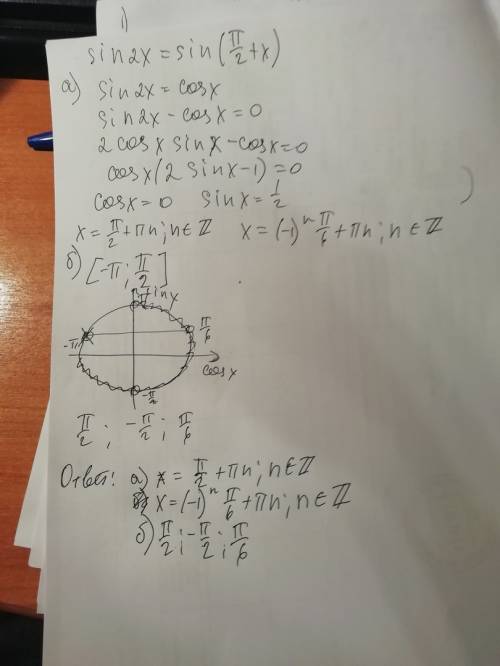 1)
sin2x = sin(π/2 + x)
а) sin2x = cosx
sin2x - cosx = 0
2cosx sinx - cosx = 0
cosx(2sinx - 1) = 0
cosx = 0 sinx = 1/2
x = π/2 + πn; n∈Z x = (-1)^n π/6 + πn; n∈Z
б) [-π; π/2]
π/2 sinx
-π π/6
cosx
-π/2
π/2; -π/2; π/6
Ответ: а) x = π/2 + πn; n∈Z
x = (-1)^n π/6 + πn; n∈Z
б) π/2; -π/2; π/6